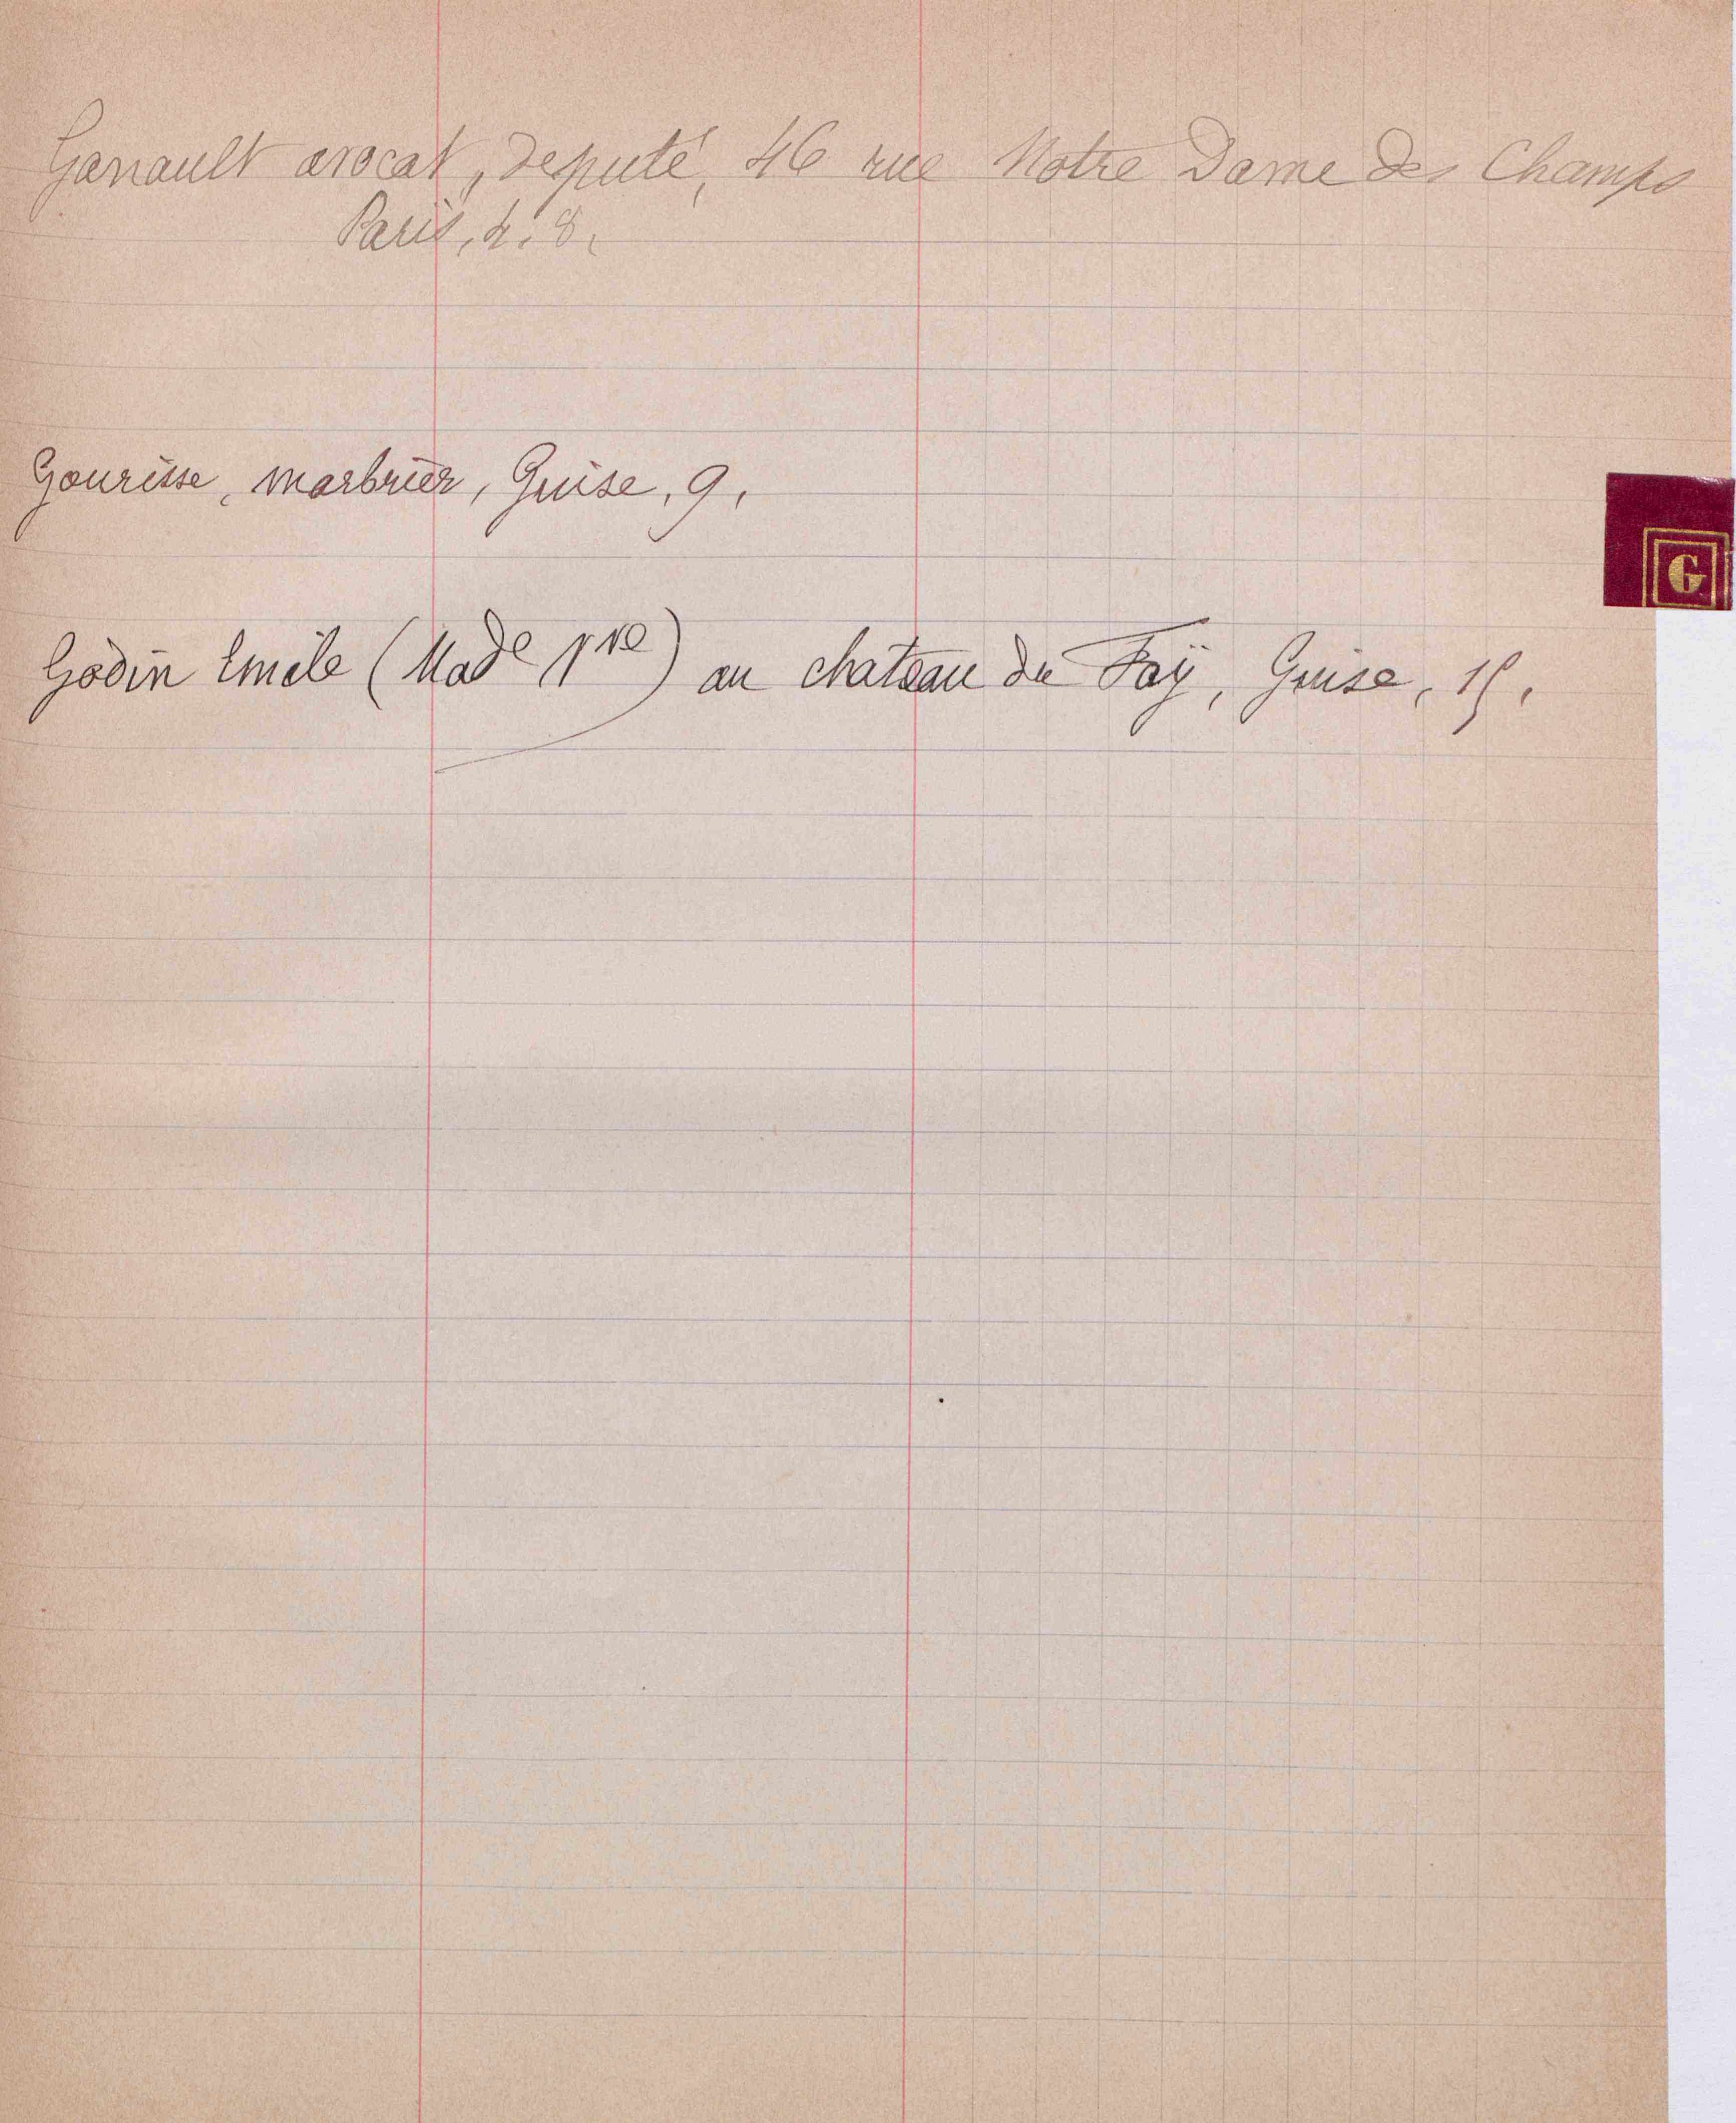 Ganault avocat, député, 46 rue Notre Dame des Champs
Paris, 4. 8.
Gourisse, marbrier, Guise, 9,
G
Godin Emile (Made Vve) au chateau du Faÿ, Guise, 15.